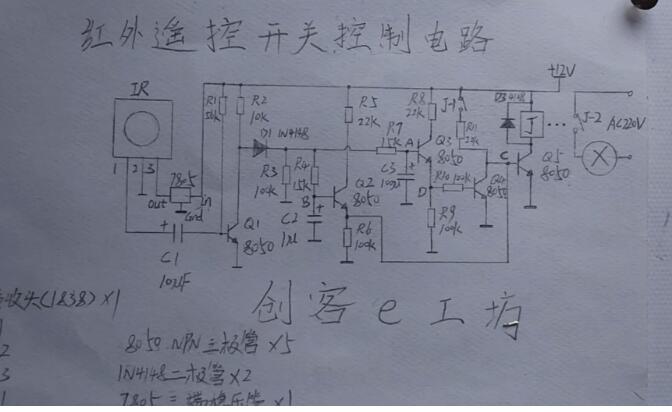 红外遥控开关控制电路
+12V
IR
R1
51k
R2
10k
D1 1N4148
R3
100k
R4
15k
R5
22k
R7
15k
A
R8
22k
J-1
R11
22k
D3 4148
J
J-2
AC220V
1 2 3
7805
out
in
Gnd
Q1
8050
B
C2
1u
Q2
8050
R6
100k
C3
100u
Q3
8050
D
R10 100k
R9
100k
Q4
8050
C
Q5
8050
C1
10uF
创客e工坊
收头(1838)×1
8050 NPN三极管×5
1N4148二极管×2
7805三端稳压管×1